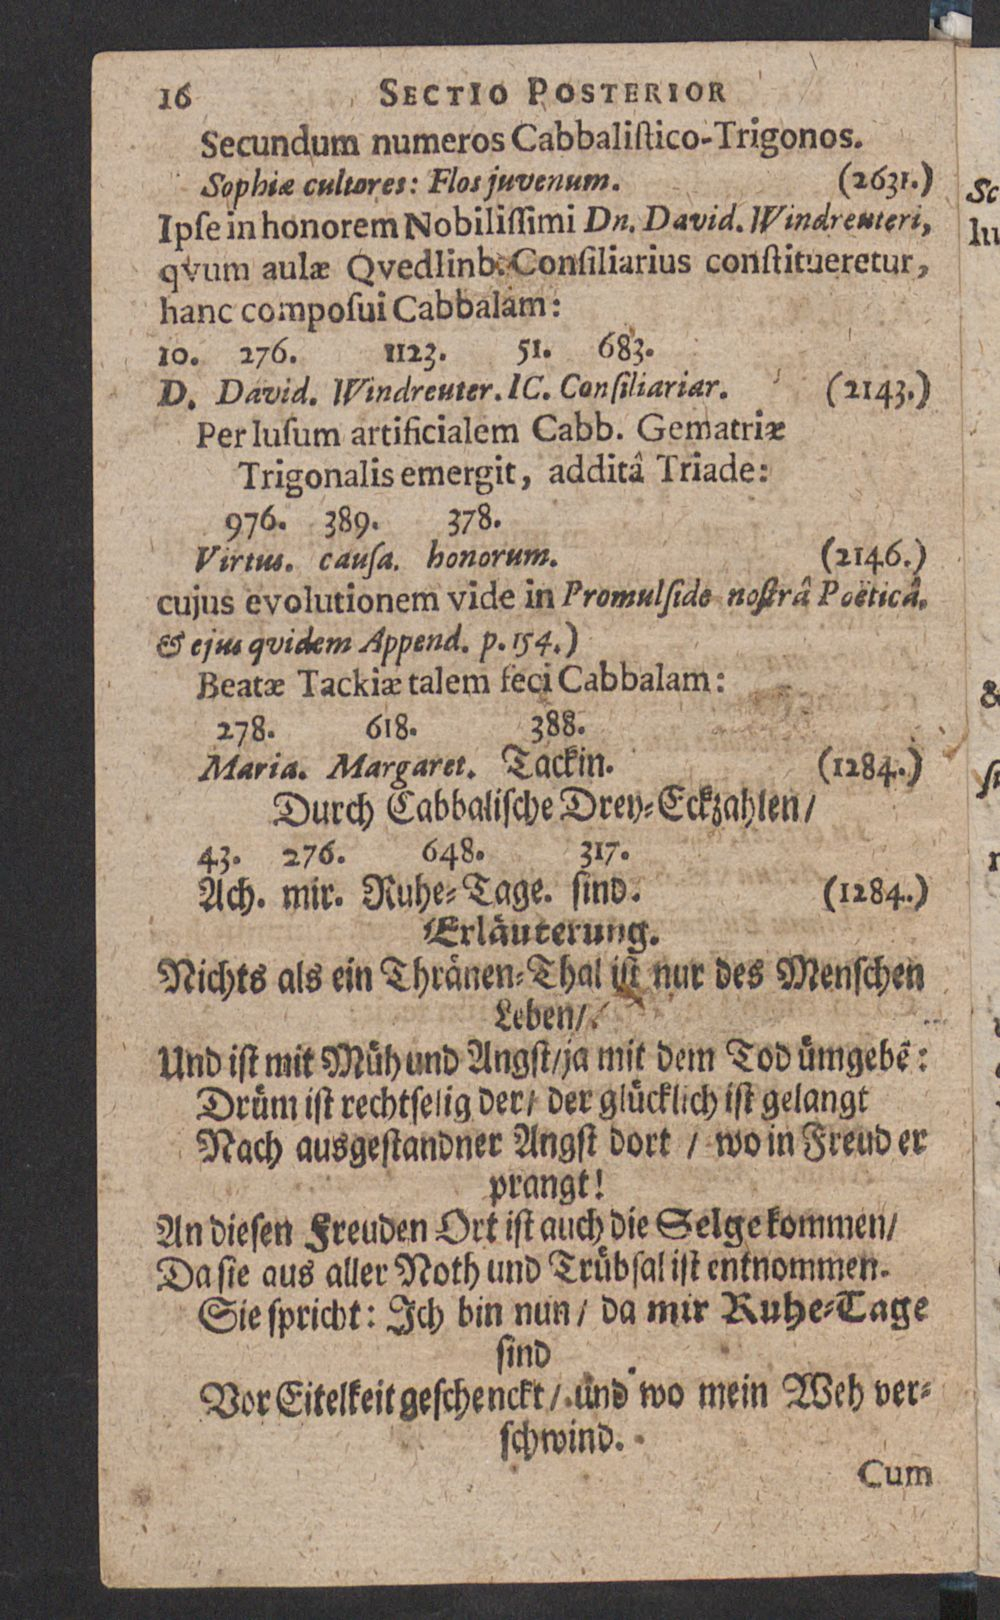 16 SECTIO POSTERIOR
Secundum numeros Cabbaliſtico-Trigonos.
Sophiæ cultores: Flos juvenum. (2631.)
Ipſe in honorem Nobiliſſimi Dn. David. Windreuteri,
qvum aulæ Qvedlinb. Conſiliarius conſtitueretur,
hanc compoſui Cabbalam:
10. 276. 1123. 51. 683.
D. David. Windreuter. IC. Conſiliariar. (2143.)
Per luſum artificialem Cabb. Gematriæ
Trigonalis emergit, additâ Triade:
976. 389. 378.
Virtus. cauſa. honorum. (2146.)
cujus evolutionem vide in Promulſide noſtrâ Poëticâ.
& ejus qvidem Append. p. 154.)
Beatæ Tackiæ talem feci Cabbalam:
278. 618. 388.
Maria. Margaret. Tackin. (1284.)
Durch Cabbaliſche Drey-Eckzahlen/
43. 276. 648. 317.
Ach. mir. Ruhe-Tage. ſind. (1284.)
Erläuterung.
Nichts als ein Thränen-Thal iſt nur des Menſchen
Leben/
Und iſt mit Müh und Angſt/ja mit dem Tod ümgebē:
Drüm iſt rechtſelig der/ der glücklich iſt gelangt
Nach ausgeſtandner Angſt dort / wo in Freud er
prangt!
An dieſen Freuden Ort iſt auch die Selge kommen/
Da ſie aus aller Noth und Trübſal iſt entnommen.
Sie ſpricht: Ich bin nun/ da mir Ruhe-Tage
ſind
Vor Eitelkeit geſchenckt/ und wo mein Weh ver-
ſchwind.
Cum